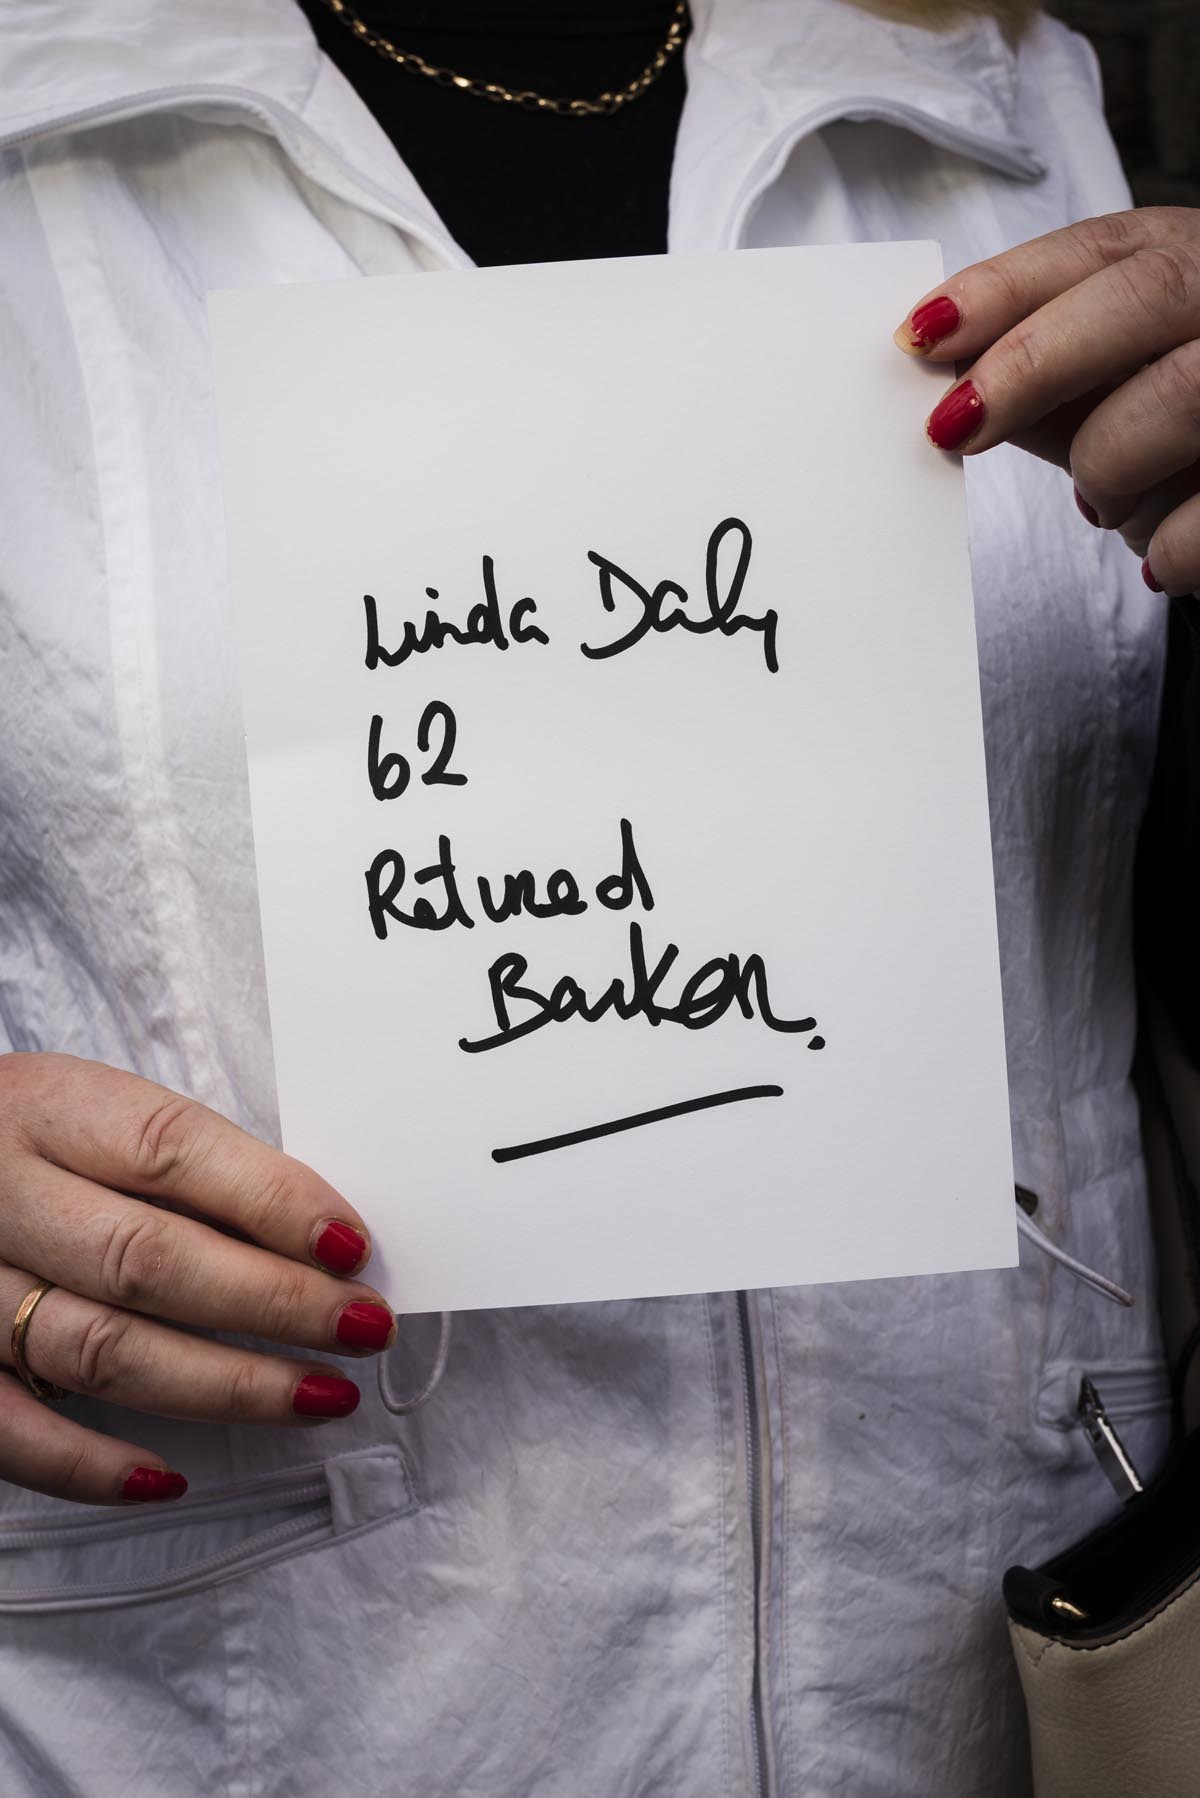 Linda Daly
62
Retired
Banker.